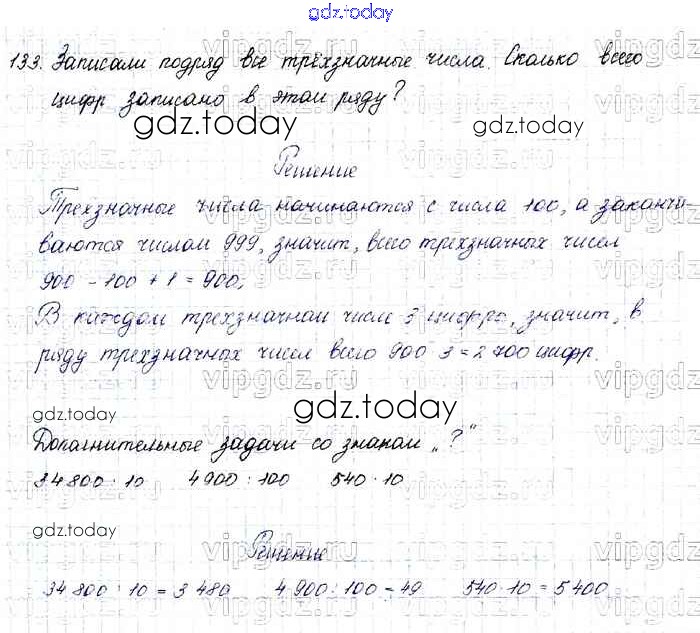 gdz.today
133. Записали подряд все трёхзначные числа. Сколько всего
цифр записано в этом ряду?
gdz.today
gdz.today
Решение
Трехзначные числа начинаются с числа 100, а заканчи-
ваются числом 999, значит, всего трехзначных чисел
900 - 100 + 1 = 900;
В каждом трехзначном числе 3 цифры, значит, в
ряду трехзначных чисел всего 900 · 3 = 2 700 цифр.
gdz.today
gdz.today
Дополнительные задачи со знаком „?"
34 800 : 10 4 900 : 100 540 · 10
gdz.today
Решение
34 800 : 10 = 3 480 4 900 : 100 = 49 540 · 10 = 5 400